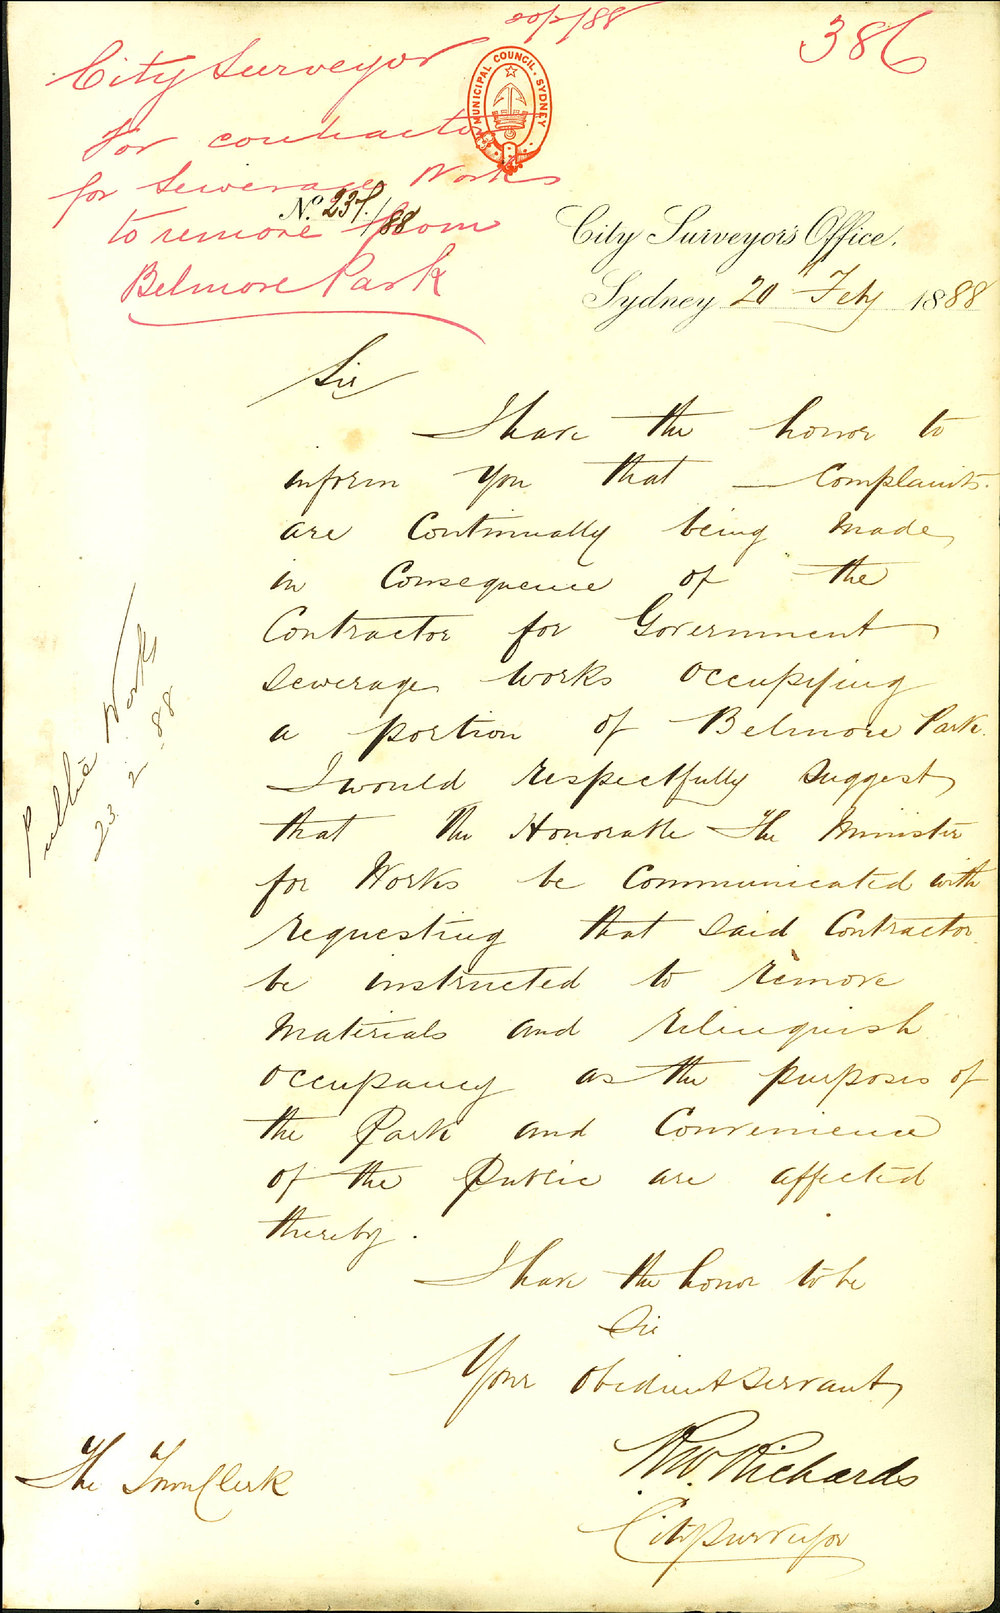 20/2/88
386
City Surveyor
For contractor
for Sewerage Works
to remove from
Belmore Park
MUNICIPAL COUNCIL. SYDNEY
No. 237/88
City Surveyor's Office.
Sydney 20 Feby 1888
Sir
I have the honor to
inform you that Complaints
are Continually being made
in Consequence of the
Contractor for Government
Sewerage works occupying
a portion of Belmore Park.
I would respectfully suggest
that the Honorable The Minister
for Works be Communicated with
requesting that said Contractor
be instructed to remove
materials and relinquish
occupancy as the purposes of
the Park and Convenience
of the Public are affected
thereby.
I have the honor to be
Sir
Your obedient servant
R W. Richards
City Surveyor
The Town Clerk
Public Works
23. 2. 88